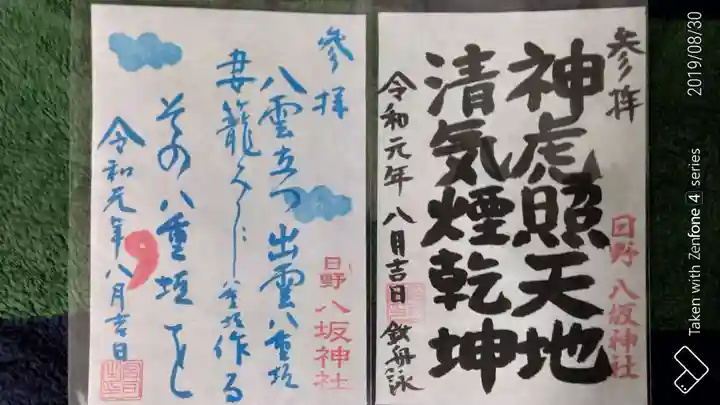 参拝
神虎照天地
清気煙乾坤
令和元年 八月吉日 鉄舟詠
日野 八坂神社
參拝
八雲立つ 出雲八重垣
妻籠みに 八重垣作る
その八重垣を
令和元年八月吉日
日野 八坂神社
2019/08/30
Taken with Zenfone 4 series